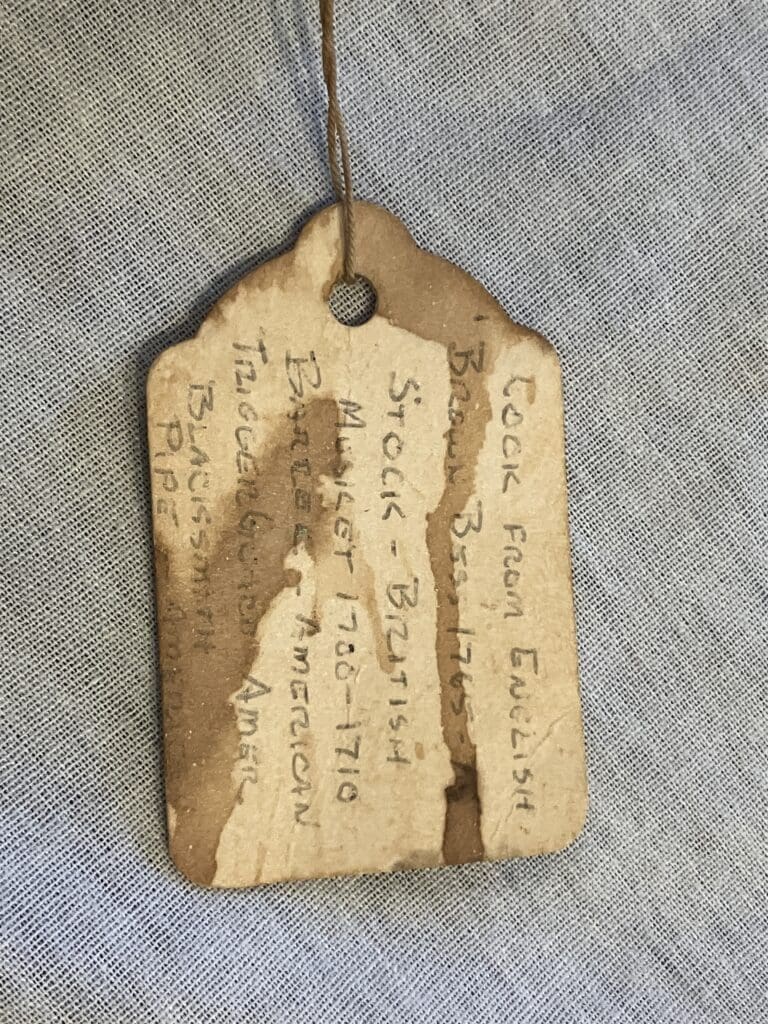 LOCK FROM ENGLISH
BROWN BESS 1765-
STOCK - BRITISH
MUSKET 1700-1710
BARREL - AMERICAN
TRIGGERGUARD AMER
BLACKSSMITH
PIPE